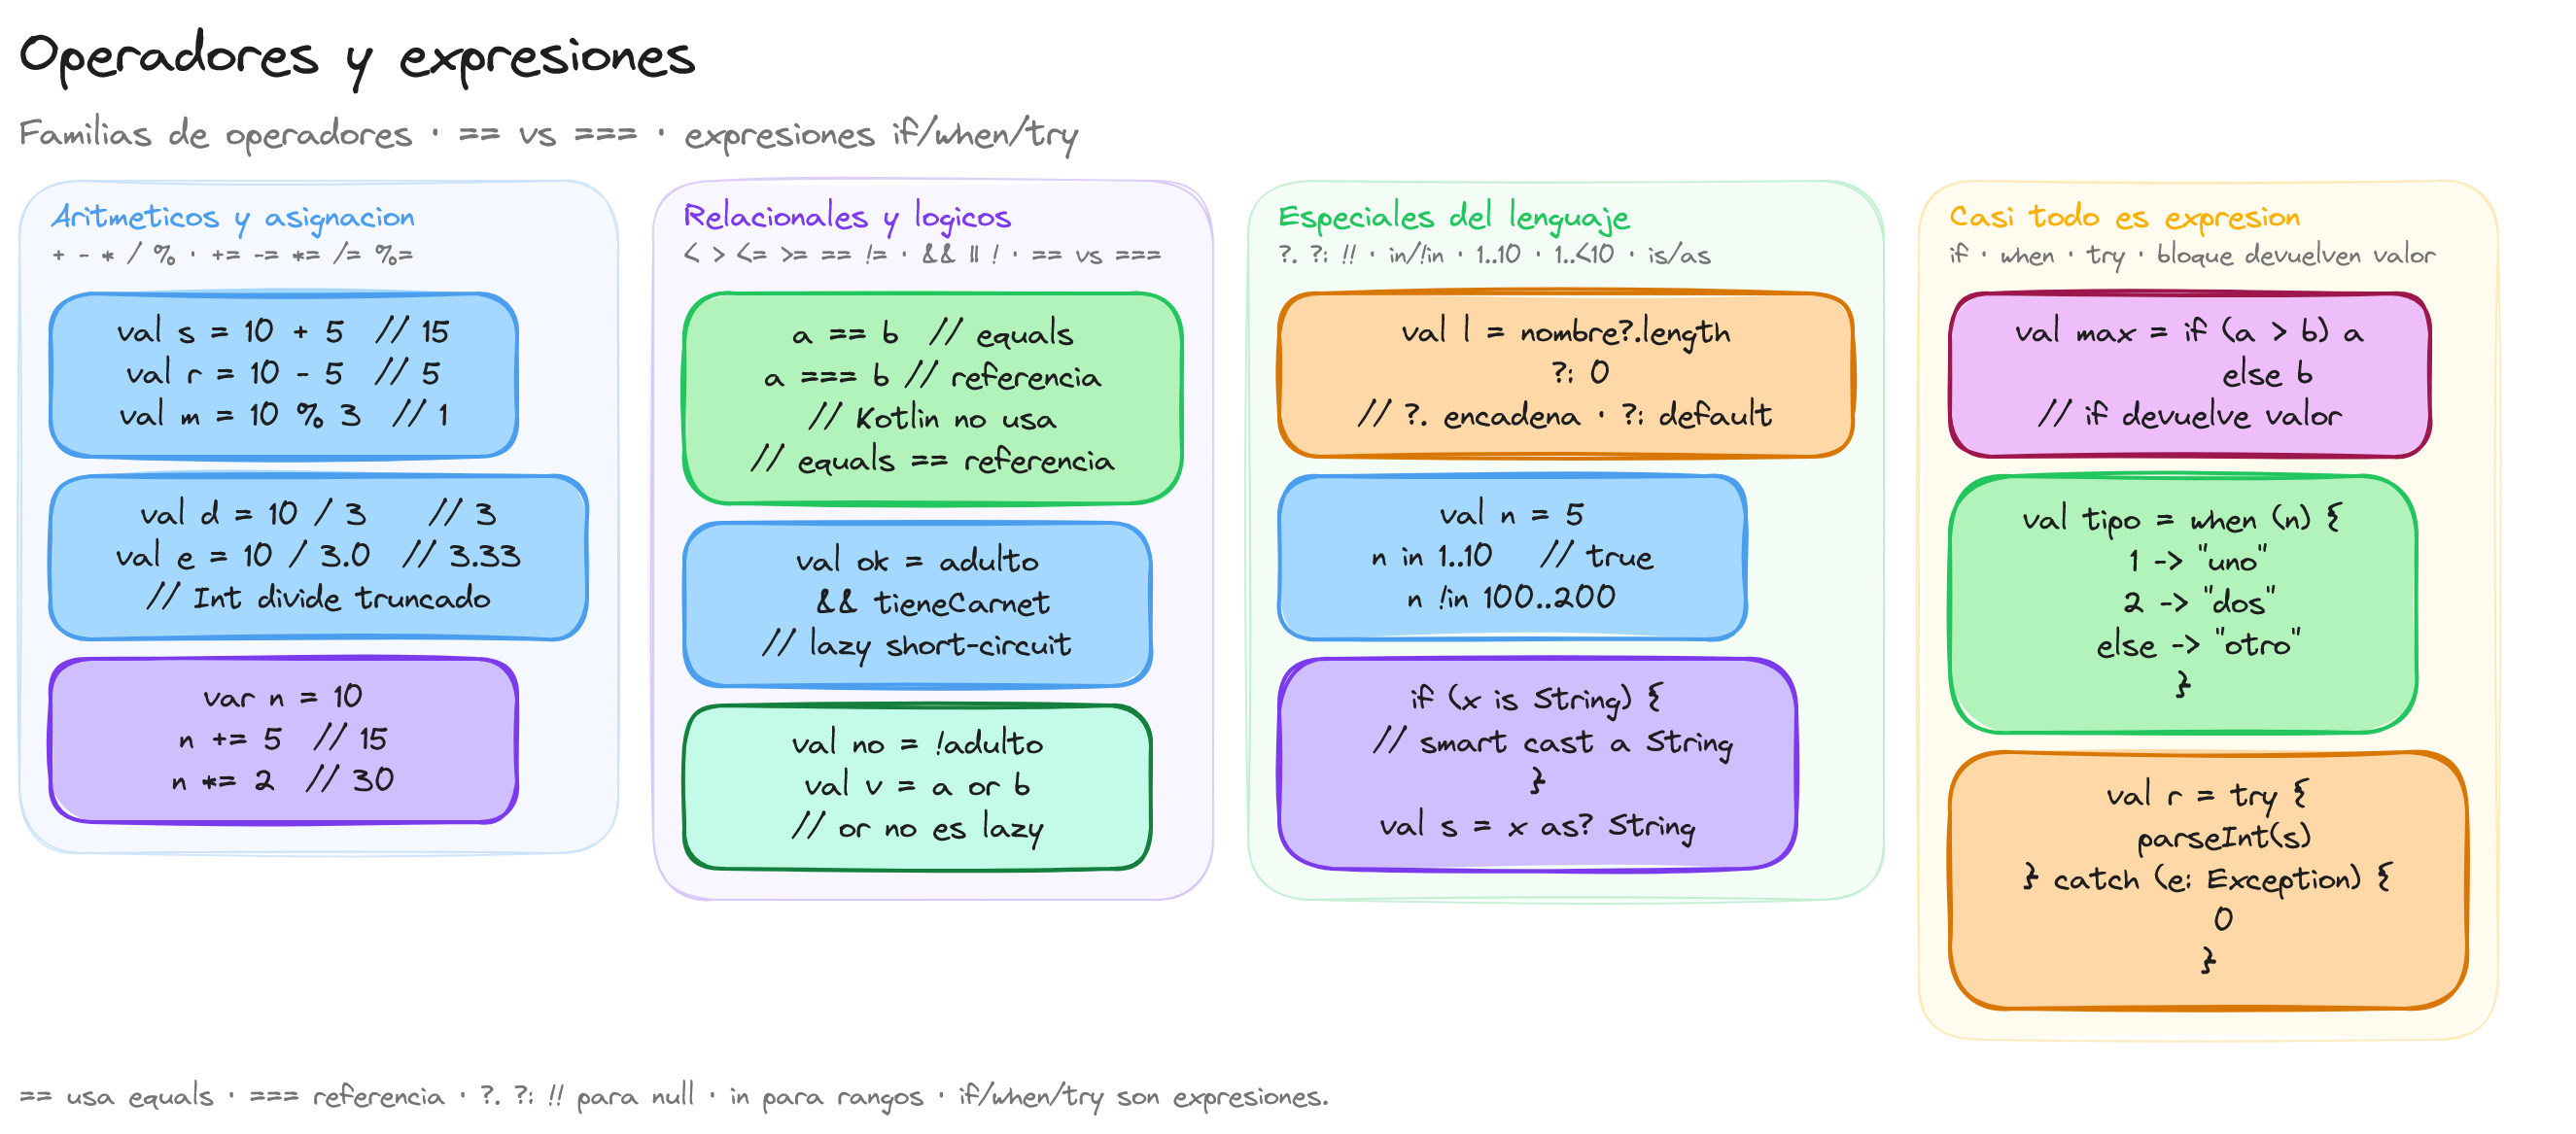 Operadores y expresiones
Familias de operadores · == vs === · expresiones if/when/try
Aritmeticos y asignacion
+ - * / % · += -= *= /= %=
val s = 10 + 5 // 15
val r = 10 - 5 // 5
val m = 10 % 3 // 1
val d = 10 / 3 // 3
val e = 10 / 3.0 // 3.33
// Int divide truncado
var n = 10
n += 5 // 15
n *= 2 // 30
Relacionales y logicos
< > <= >= == != · && || ! · == vs ===
a == b // equals
a === b // referencia
// Kotlin no usa
// equals == referencia
val ok = adulto
&& tieneCarnet
// lazy short-circuit
val no = !adulto
val v = a or b
// or no es lazy
Especiales del lenguaje
?. ?: !! · in/!in · 1..10 · 1..<10 · is/as
val l = nombre?.length
?: 0
// ?. encadena · ?: default
val n = 5
n in 1..10 // true
n !in 100..200
if (x is String) {
// smart cast a String
}
val s = x as? String
Casi todo es expresion
if · when · try · bloque devuelven valor
val max = if (a > b) a
else b
// if devuelve valor
val tipo = when (n) {
1 -> "uno"
2 -> "dos"
else -> "otro"
}
val r = try {
parseInt(s)
} catch (e: Exception) {
0
}
== usa equals · === referencia · ?. ?: !! para null · in para rangos · if/when/try son expresiones.